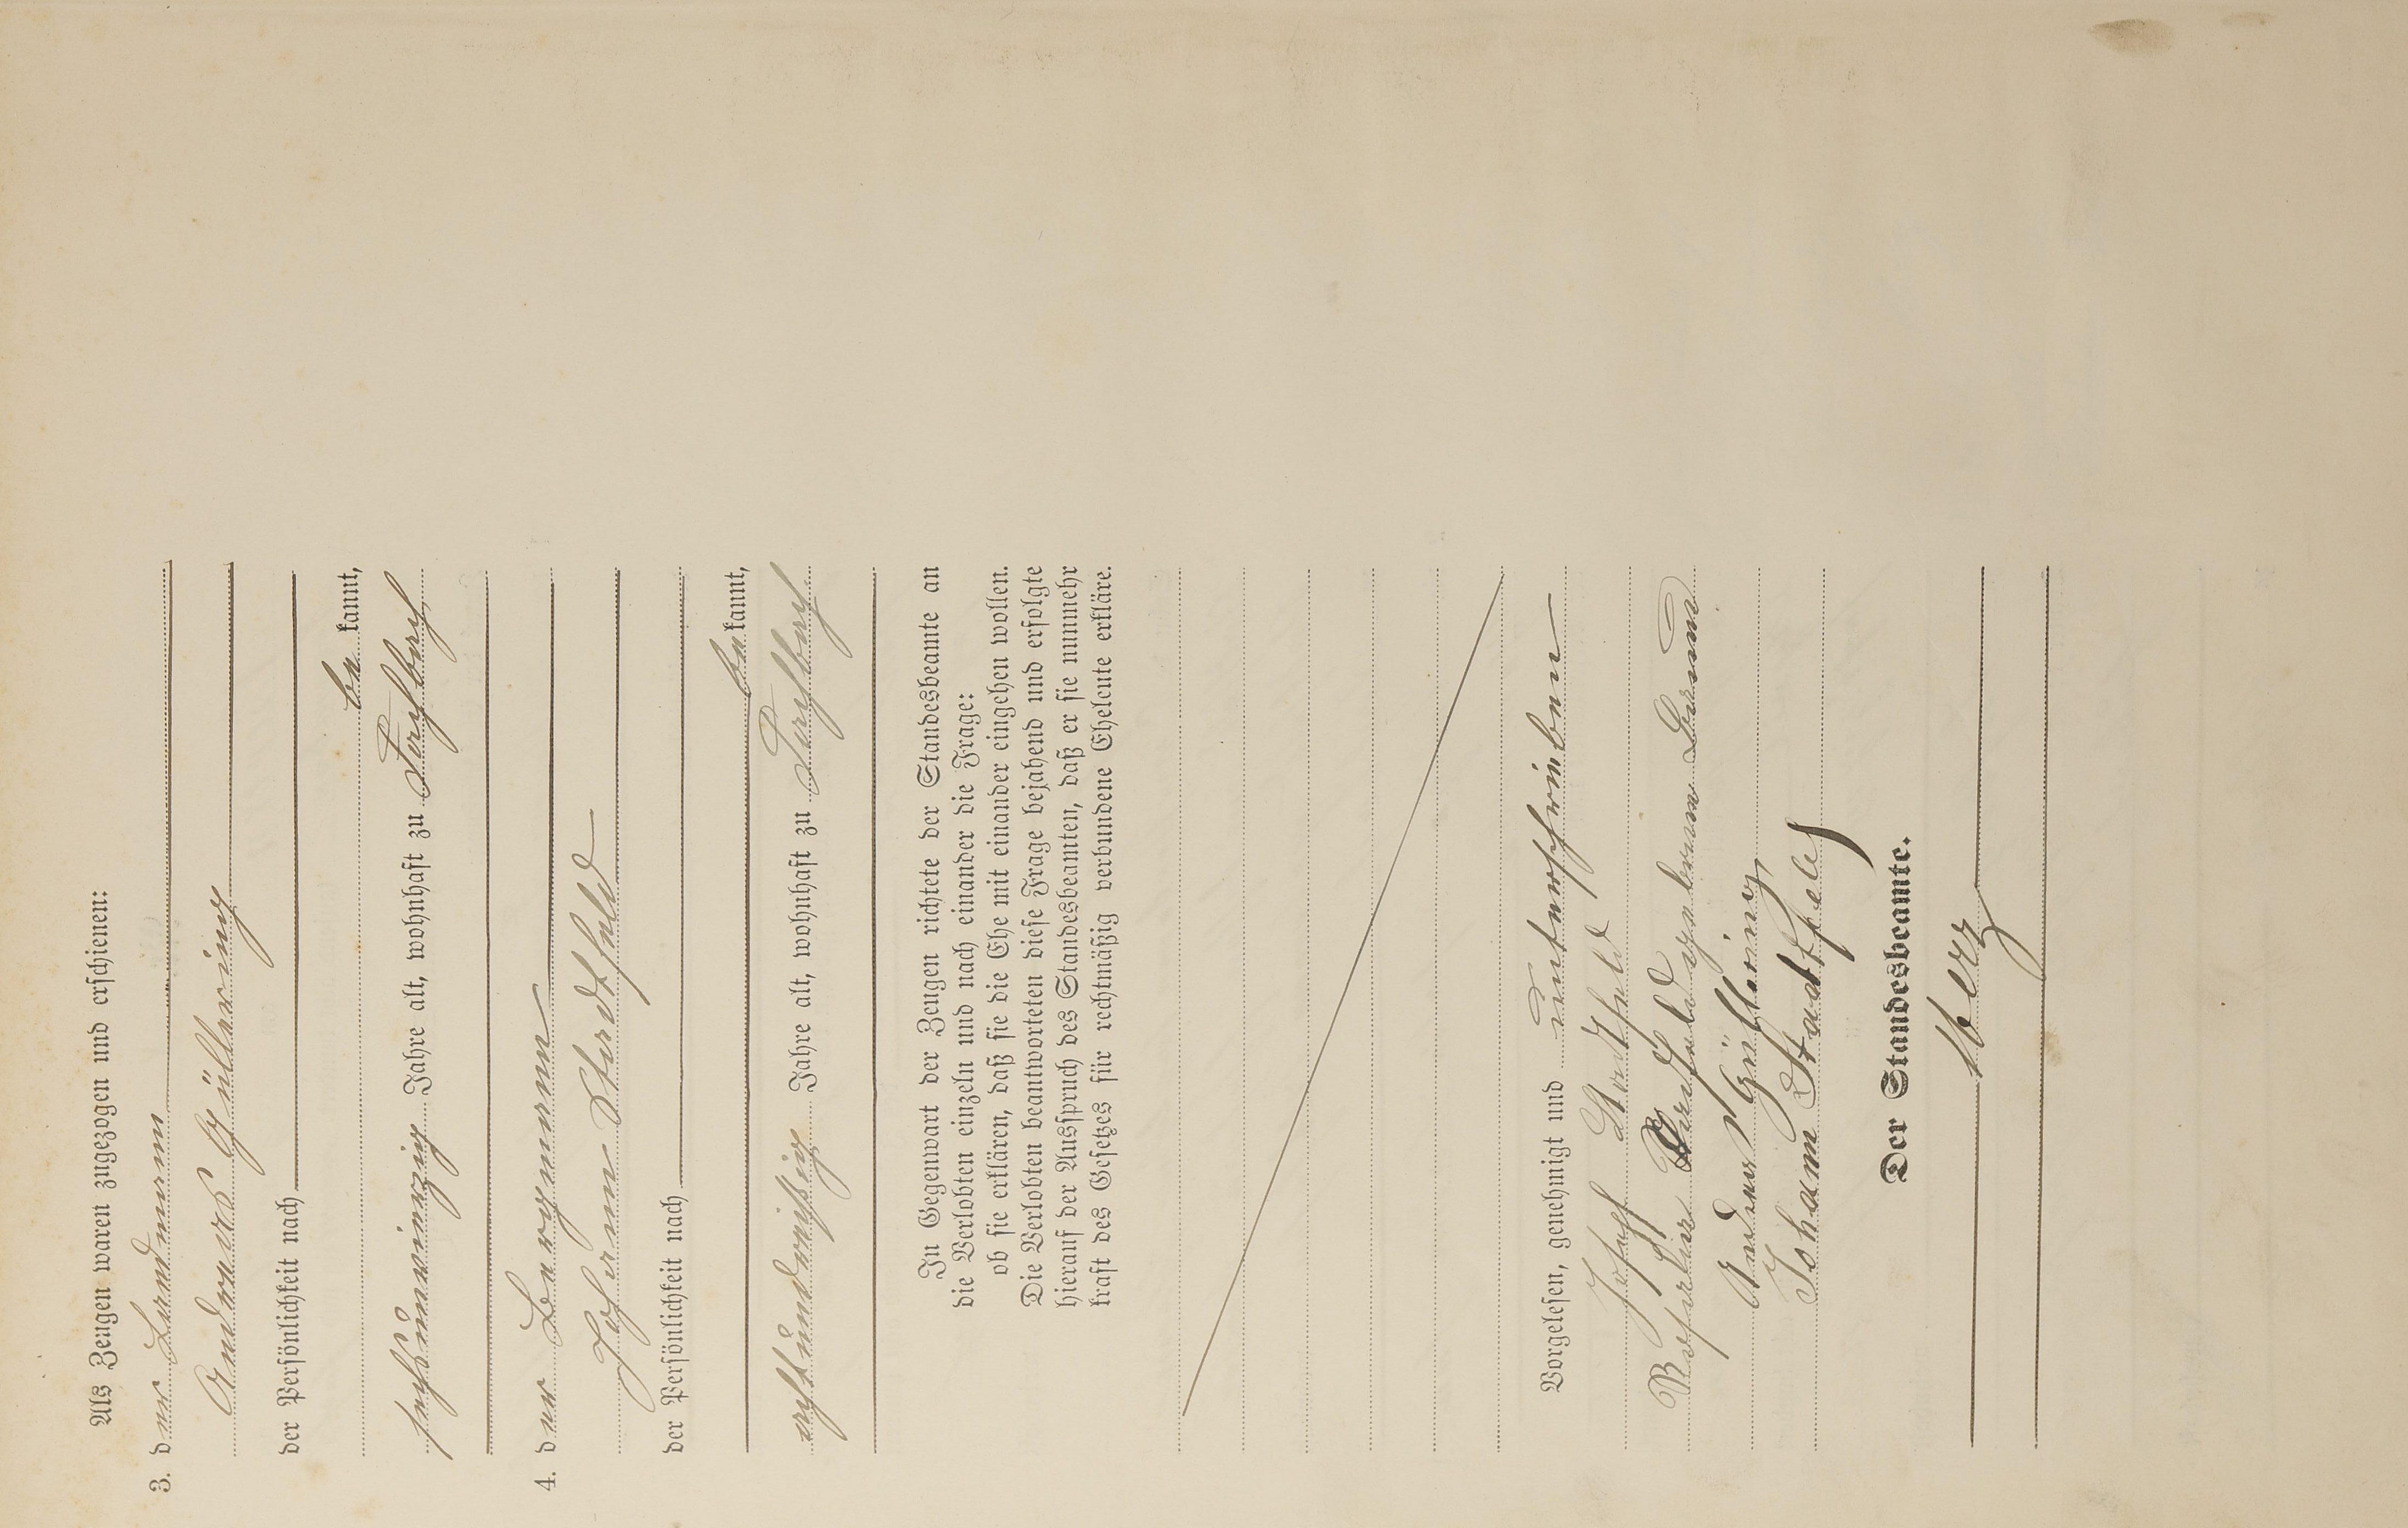 Als Zeugen waren zugezogen und erschienen:
3. der Landmann
Andreas Güllering
der Persönlichkeit nach
be kannt,
sechsundvierzig Jahre alt, wohnhaft zu
4. der Bergmann
Johann Stadtfeld
der Persönlichkeit nach
be kannt,
achtunddreißig Jahre alt, wohnhaft zu
In Gegenwart der Zeugen richtete der Standesbeamte an
die Verlobten einzeln und nach einander die Frage:
ob sie erklären, daß sie die Ehe mit einander eingehen wollen.
Die Verlobten beantworteten diese Frage bejahend und erfolgte
hierauf der Ausspruch des Standesbeamten, daß er sie nunmehr
kraft des Gesetzes für rechtmäßig verbundene Eheleute erkläre.
Vorgelesen, genehmigt und unterschrieben
Josef Stadtfeld
Stadtfeld geborene
Andreas Güllering
Johann Stadtfeld
Der Standesbeamte.